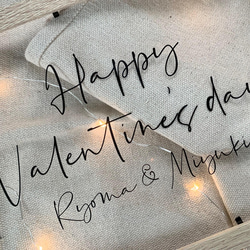 Happy
Valentine's day
Ryoma & Miyuku